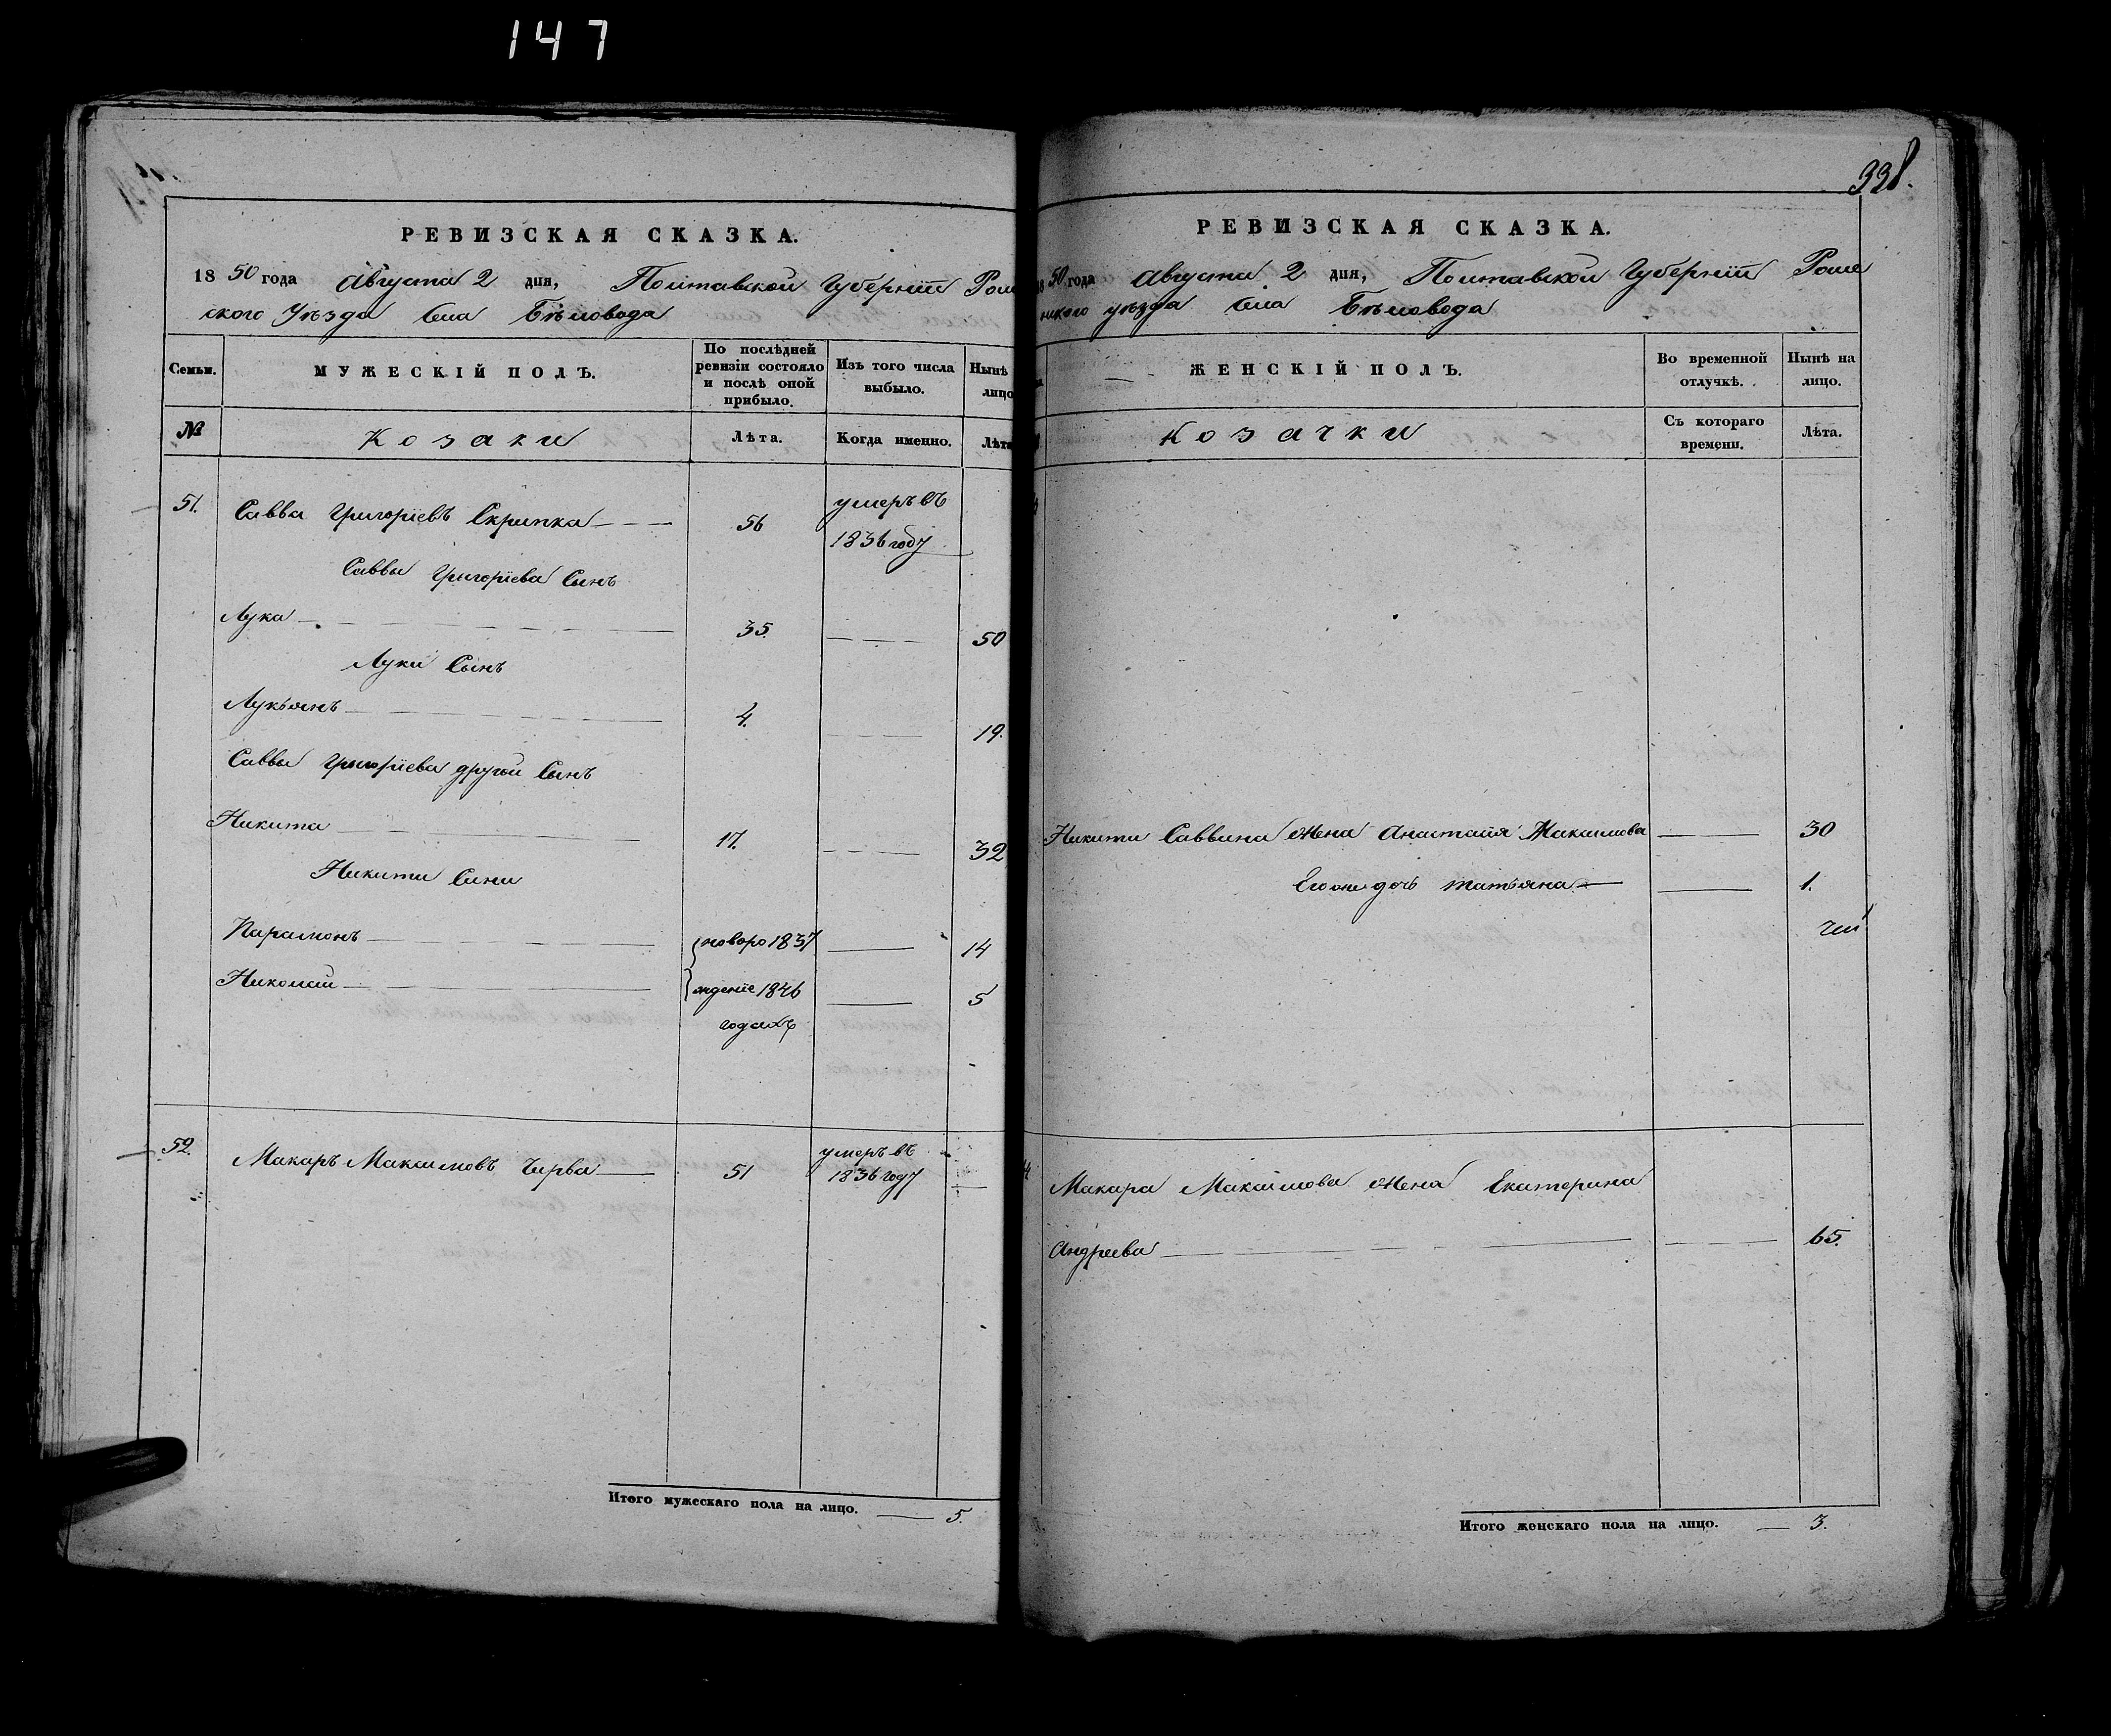 147
РЕВИЗСКАЯ СКАЗКА.
1850 года Августа 2 дня, Полтавской Губерніи Роме
скаго Уѣзда Села Бѣловода
Семьи.
МУЖЕСКІЙ ПОЛЪ.
По послѣдней ревизіи состояло и послѣ оной прибыло.
Изъ того числа выбыло.
Нынѣ лицо
№
Козаки
Лѣта.
Когда именно.
Лѣта
51. Савва Григоріевъ Скрипка 56 умеръ въ
1836 году
Саввы Григоріева Сынъ
Лука 35. 50
Луки Сынъ
Лукьянъ 4. 19.
Саввы Григоріева другой Сынъ
Никита 17. 32
Никиты Сыни
Парамонъ новоро 1837 14
Николай жденіе 1846 5
годахъ
52. Макаръ Максимовъ Чирва 51 умеръ въ
1836 году
Итого мужескаго пола на лицо. 5.
338.
РЕВИЗСКАЯ СКАЗКА.
1850 года Августа 2 дня, Полтавской Губерніи Роме
нскаго уѣзда Села Бѣловода
ЖЕНСКІЙ ПОЛЪ.
Во временной отлучкѣ.
Нынѣ на лицо.
Козачки
Съ котораго времени.
Лѣта.
Никиты Саввина жена Анастасія Максимова 30
Его же дочь Татьяна 1.
Макара Максимова жена Екатерина
Андреева 65.
Итого женскаго пола на лицо. 3.